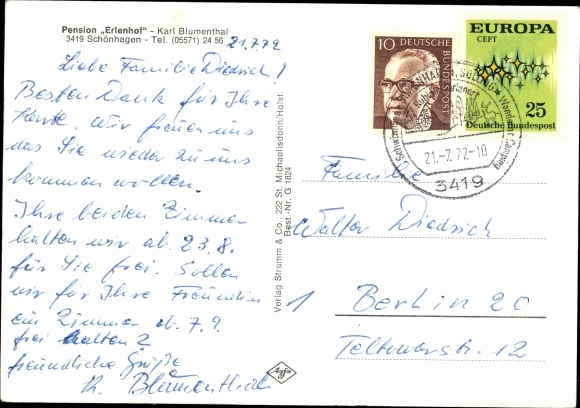 Pension „Erlenhof" - Karl Blumenthal
3419 Schönhagen - Tel. (05571) 24 56
21.7.72
Liebe Familie Diedrich!
Besten Dank für Ihre
Karte. Wir freuen uns
das Sie wieder zu uns
kommen wollen.
Ihre beiden Zimmer
halten wir ab 23.8.
für Sie frei. Sollen
wir für Ihre Freundin
ein Zimmer ab 7.9.
frei halten?
freundliche Grüße
K. Blumenthal
Verlag Stramm & Co., 222 St. Michaelisdonn/Holst.
Best.-Nr. G 1824
Agfa
10 DEUTSCHE BUNDESPOST
EUROPA
CEPT
25
Deutsche Bundespost
21.-7.72-10
3419
Familie
Walter Diedrich
1 Berlin 20
Teltowerstr. 12